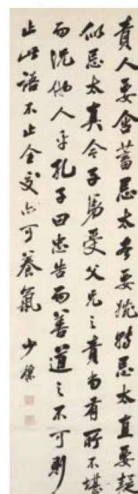 責人要含蓄忌太盡要婉轉忌太直要疑
似忌太真今子弟受父兄之責尚有所不堪
而況他人乎孔子曰忠告而善道之不可則
止此語不止全交亦可養氣 少傑